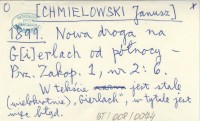 [CHMIELOWSKI Janusz]
1899. Nowa droga na
G[i]erlach od północy –
Prz. Zakop. 1, nr 2: 6.
W tekście jest stale
(wielokrotnie) „Gierlach", w tytule jest
więc błąd.